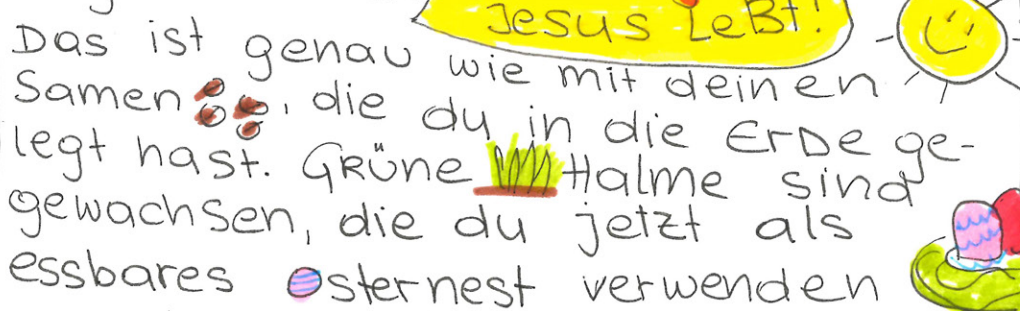 Jesus LeBt!
Das ist genau wie mit deinen
Samen, die du in die ErDe ge-
legt hast. GRüne Halme sind
gewachsen, die du jetzt als
essbares Osternest verwenden